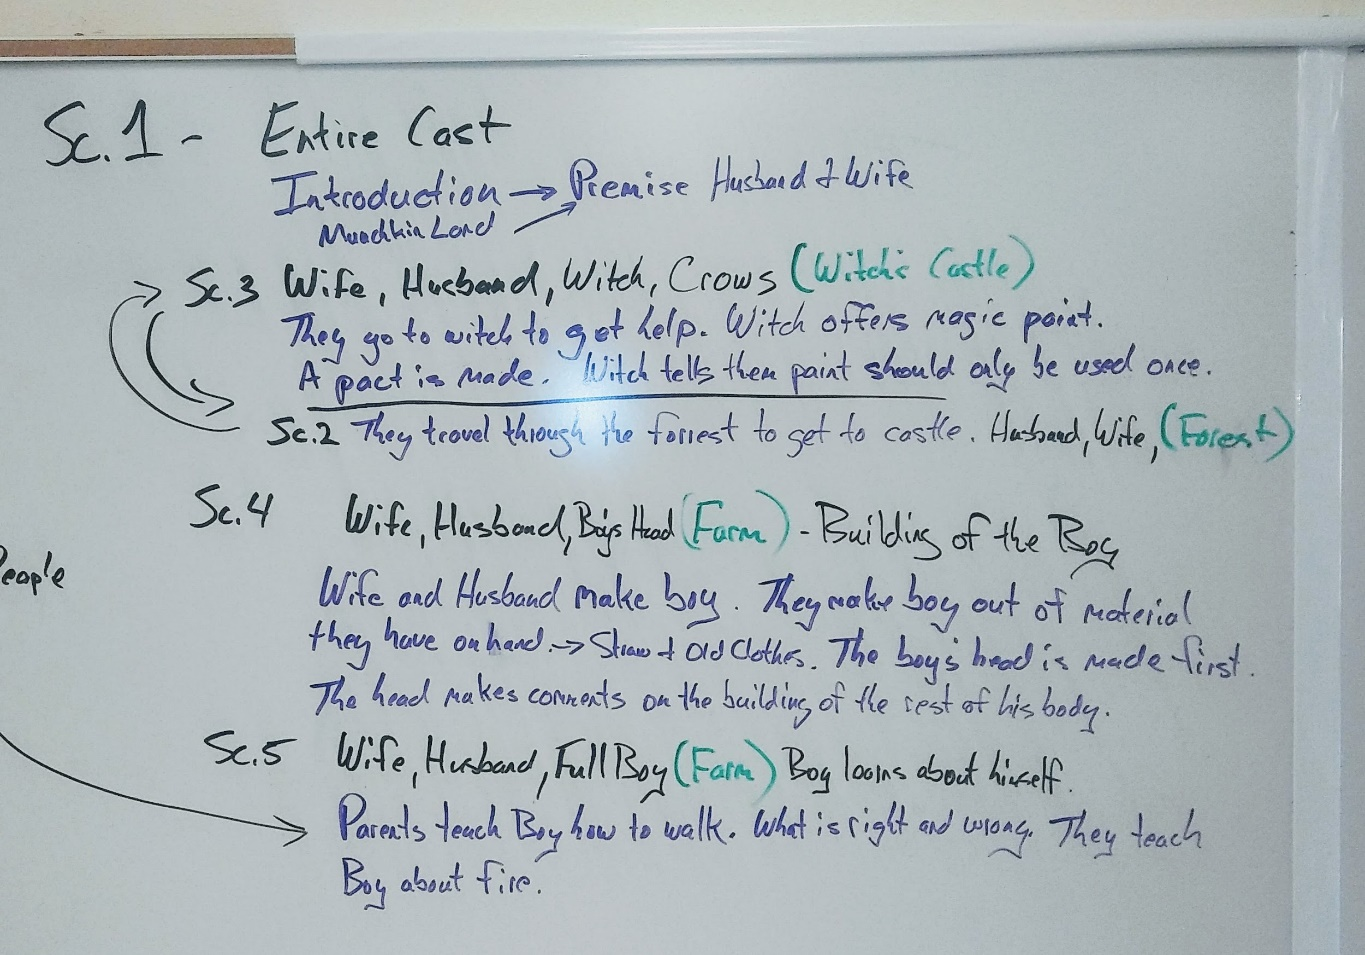 Sc.1 - Entire Cast
Introduction → Premise Husband & Wife
Munchkin Land
Sc.3 Wife, Husband, Witch, Crows (Witch's Castle)
They go to witch to get help. Witch offers magic paint.
A pact is made. Witch tells them paint should only be used once.
Sc.2 They travel through the forrest to get to castle. Husband, Wife, (Forest)
Sc.4 Wife, Husband, Boy's Head (Farm) - Building of the Boy
eople
Wife and Husband make boy. They make boy out of material
they have on hand. → Straw & Old Clothes. The boy's head is made first.
The head makes comments on the building of the rest of his body.
Sc.5 Wife, Husband, Full Boy (Farm) Boy learns about himself.
Parents teach Boy how to walk. What is right and wrong. They teach
Boy about fire.